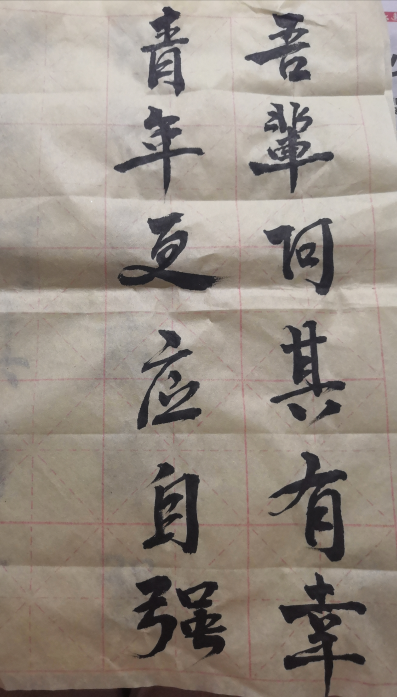 吾輩何其有幸
青年更应自强